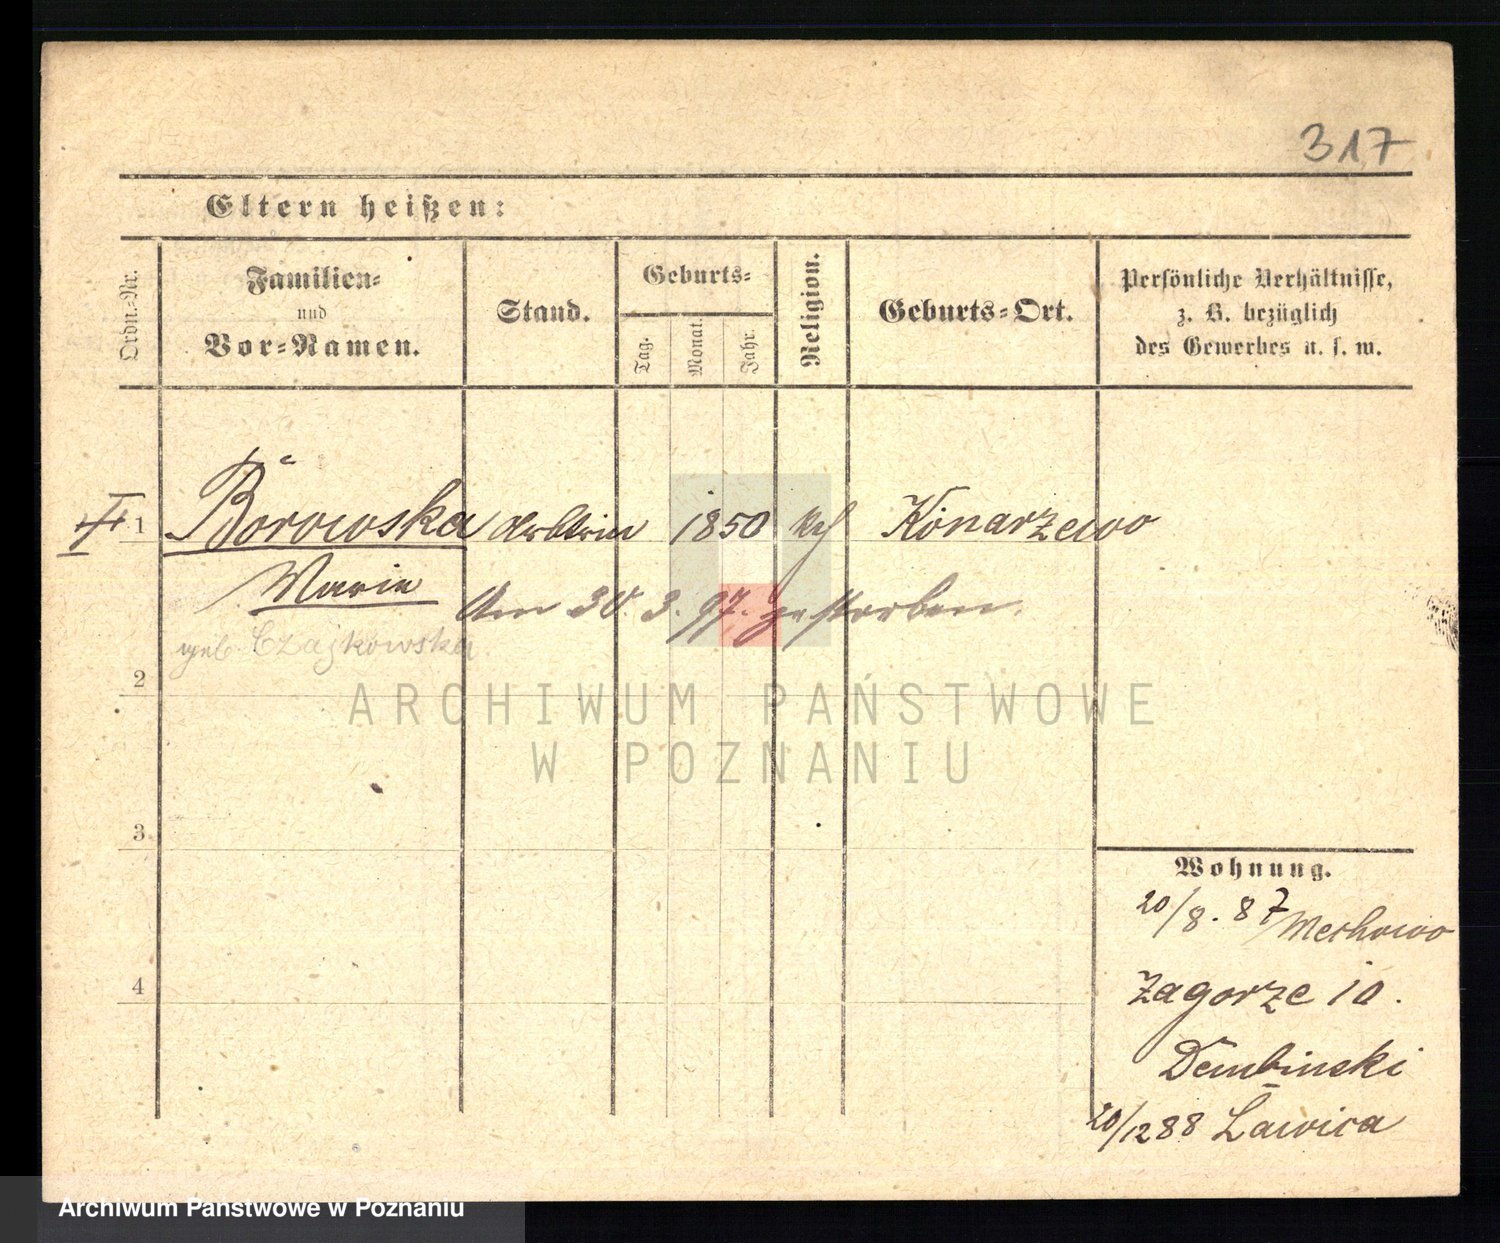 317
Eltern heißen:
Ordn.-Nr.
Familien-
und
Vor-Namen.
Stand.
Geburts-
Tag.
Monat.
Jahr.
Religion.
Geburts-Ort.
Persönliche Verhältnisse,
z. B. bezüglich
des Gewerbes u. s. w.
1 Borowska 1850 Kch Konarzewo
Maria Am 30. 3. 97. gestorben.
geb. Czajkowska.
2
ARCHIWUM PAŃSTWOWE
W POZNANIU
3
Wohnung.
20/8. 87
4
Zagorze 10.
Dembinski
20/12 88 Lawica
Archiwum Państwowe w Poznaniu